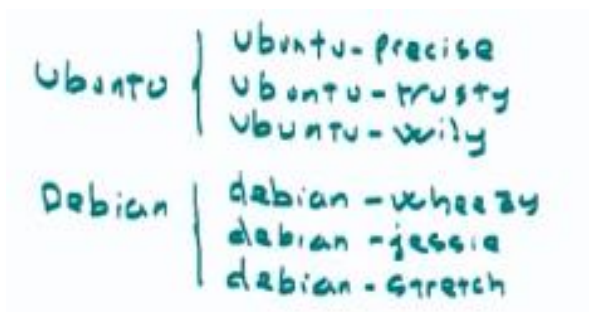 Ubuntu-precise
Ubuntu ubuntu-trusty
Ubuntu-wily
Debian debian-wheezy
debian-jessie
debian-stretch